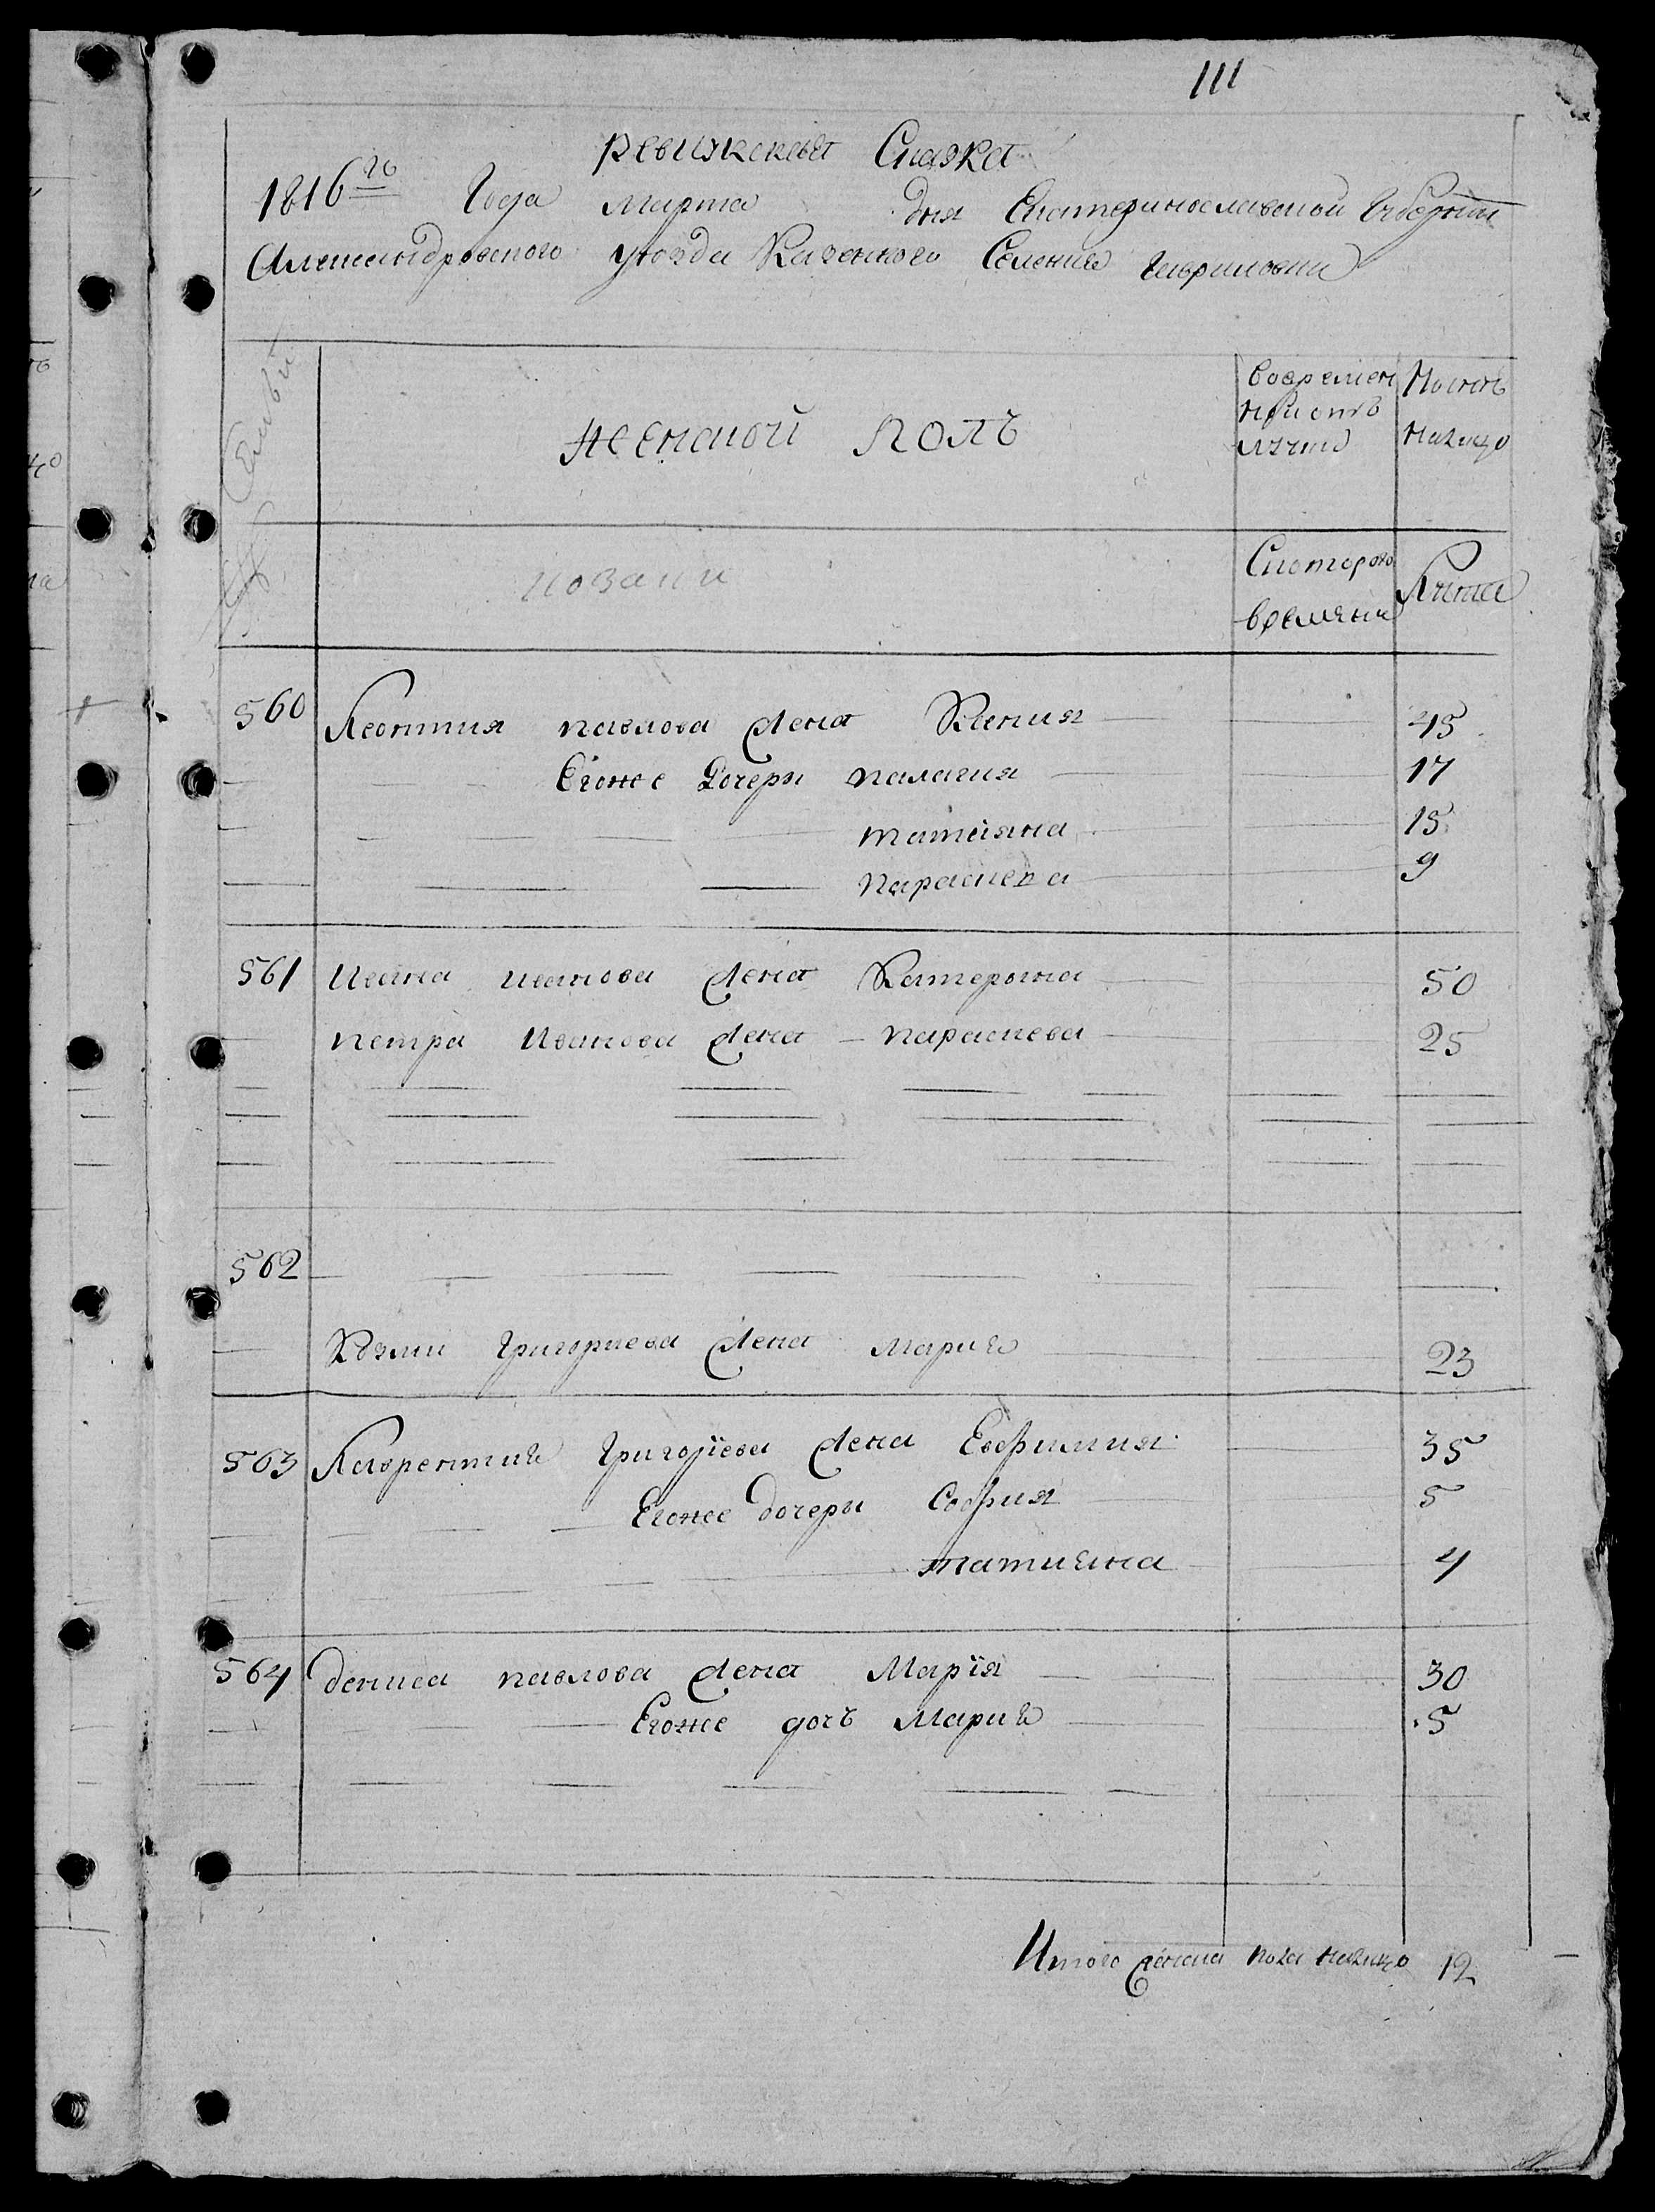 111
Ревизская Сказка
1816го Года Марта дня Екатеринославской Губернии
Александровского уезда Казенного Селения Гавриловки
Семьи
Женской полъ
Вовремен
ной отъ
лучке
Ныне
налицо
Скоторого
времяни
Лета
560 Леонтия павлова жена Ксения 45
Егоже Дочери палагия 17
татияна 15
параскева 9
561 Ивана иванова жена Катерина 50
петра Иванова жена параскева 25
562
Козми григориева жена мария 23
563 Лаврентия григорїева жена Евфимия 35
Егоже дочери София 5
татияна 4
564 дениса павлова жена Марїя 30
Егоже дочъ Мария 5
Итого женска пола налицо 12